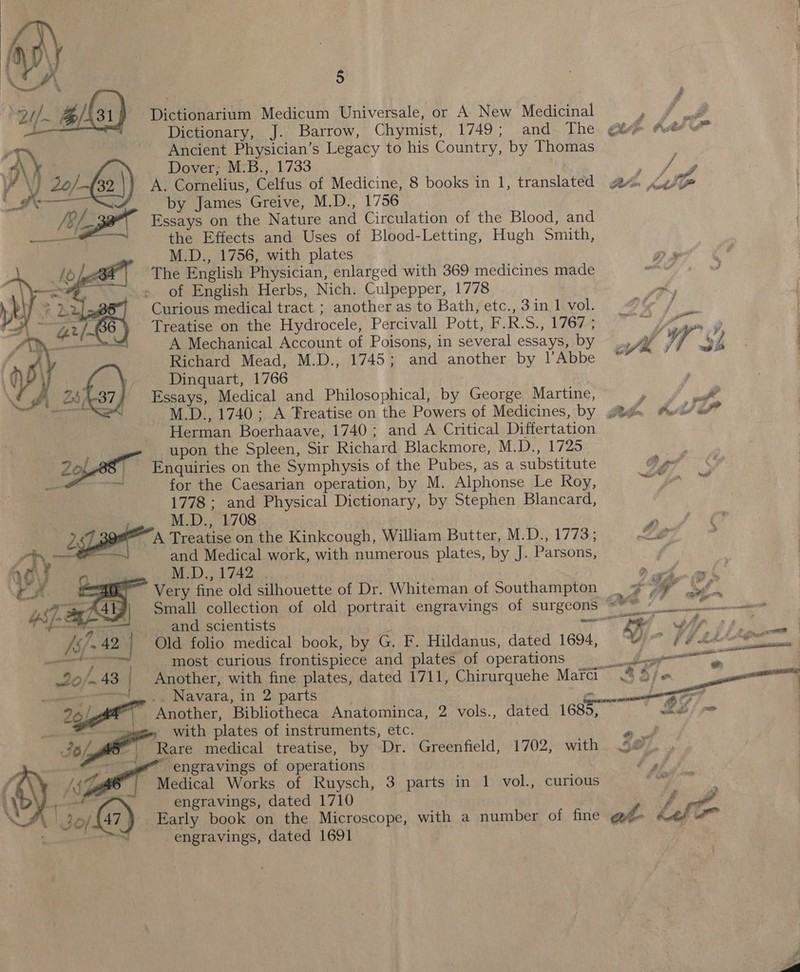 5
21/- 31 Dictionarium Medicum Universale, or A New Medicinal
Dictionary, J. Barrow, Chymist, 1749; and The
Ancient Physician's Legacy to his Country, by Thomas
Dover, M.B., 1733
20/- 32 A. Cornelius, Celfus of Medicine, 8 books in 1, translated
by James Greive, M.D., 1756
Essays on the Nature and Circulation of the Blood, and
the Effects and Uses of Blood-Letting, Hugh Smith,
M.D., 1756, with plates
The English Physician, enlarged with 369 medicines made
of English Herbs, Nich. Culpepper, 1778
Curious medical tract ; another as to Bath, etc., 3 in 1 vol.
Treatise on the Hydrocele, Percivall Pott, F.R.S., 1767 ;
A Mechanical Account of Poisons, in several essays, by
Richard Mead, M.D., 1745; and another by l'Abbe
Dinquart, 1766
37 Essays, Medical and Philosophical, by George Martine,
M.D., 1740 ; A Treatise on the Powers of Medicines, by
Herman Boerhaave, 1740 ; and A Critical Differtation
upon the Spleen, Sir Richard Blackmore, M.D., 1725
Enquiries on the Symphysis of the Pubes, as a substitute
for the Caesarian operation, by M. Alphonse Le Roy,
1778 ; and Physical Dictionary, by Stephen Blancard,
M.D., 1708
A Treatise on the Kinkcough, William Butter, M.D., 1773 ;
and Medical work, with numerous plates, by J. Parsons,
M.D., 1742
Very fine old silhouette of Dr. Whiteman of Southampton
41 Small collection of old portrait engravings of surgeons
and scientists
15/- 42 Old folio medical book, by G. F. Hildanus, dated 1694,
most curious frontispiece and plates of operations
20/- 43 Another, with fine plates, dated 1711, Chirurquehe Marci
Navara, in 2 parts
Another, Bibliotheca Anatominca, 2 vols., dated 1685,
with plates of instruments, etc.
Rare medical treatise, by Dr. Greenfield, 1702, with
engravings of operations
Medical Works of Ruysch, 3 parts in 1 vol., curious
engravings, dated 1710
30/ 47 Early book on the Microscope, with a number of fine
engravings, dated 1691